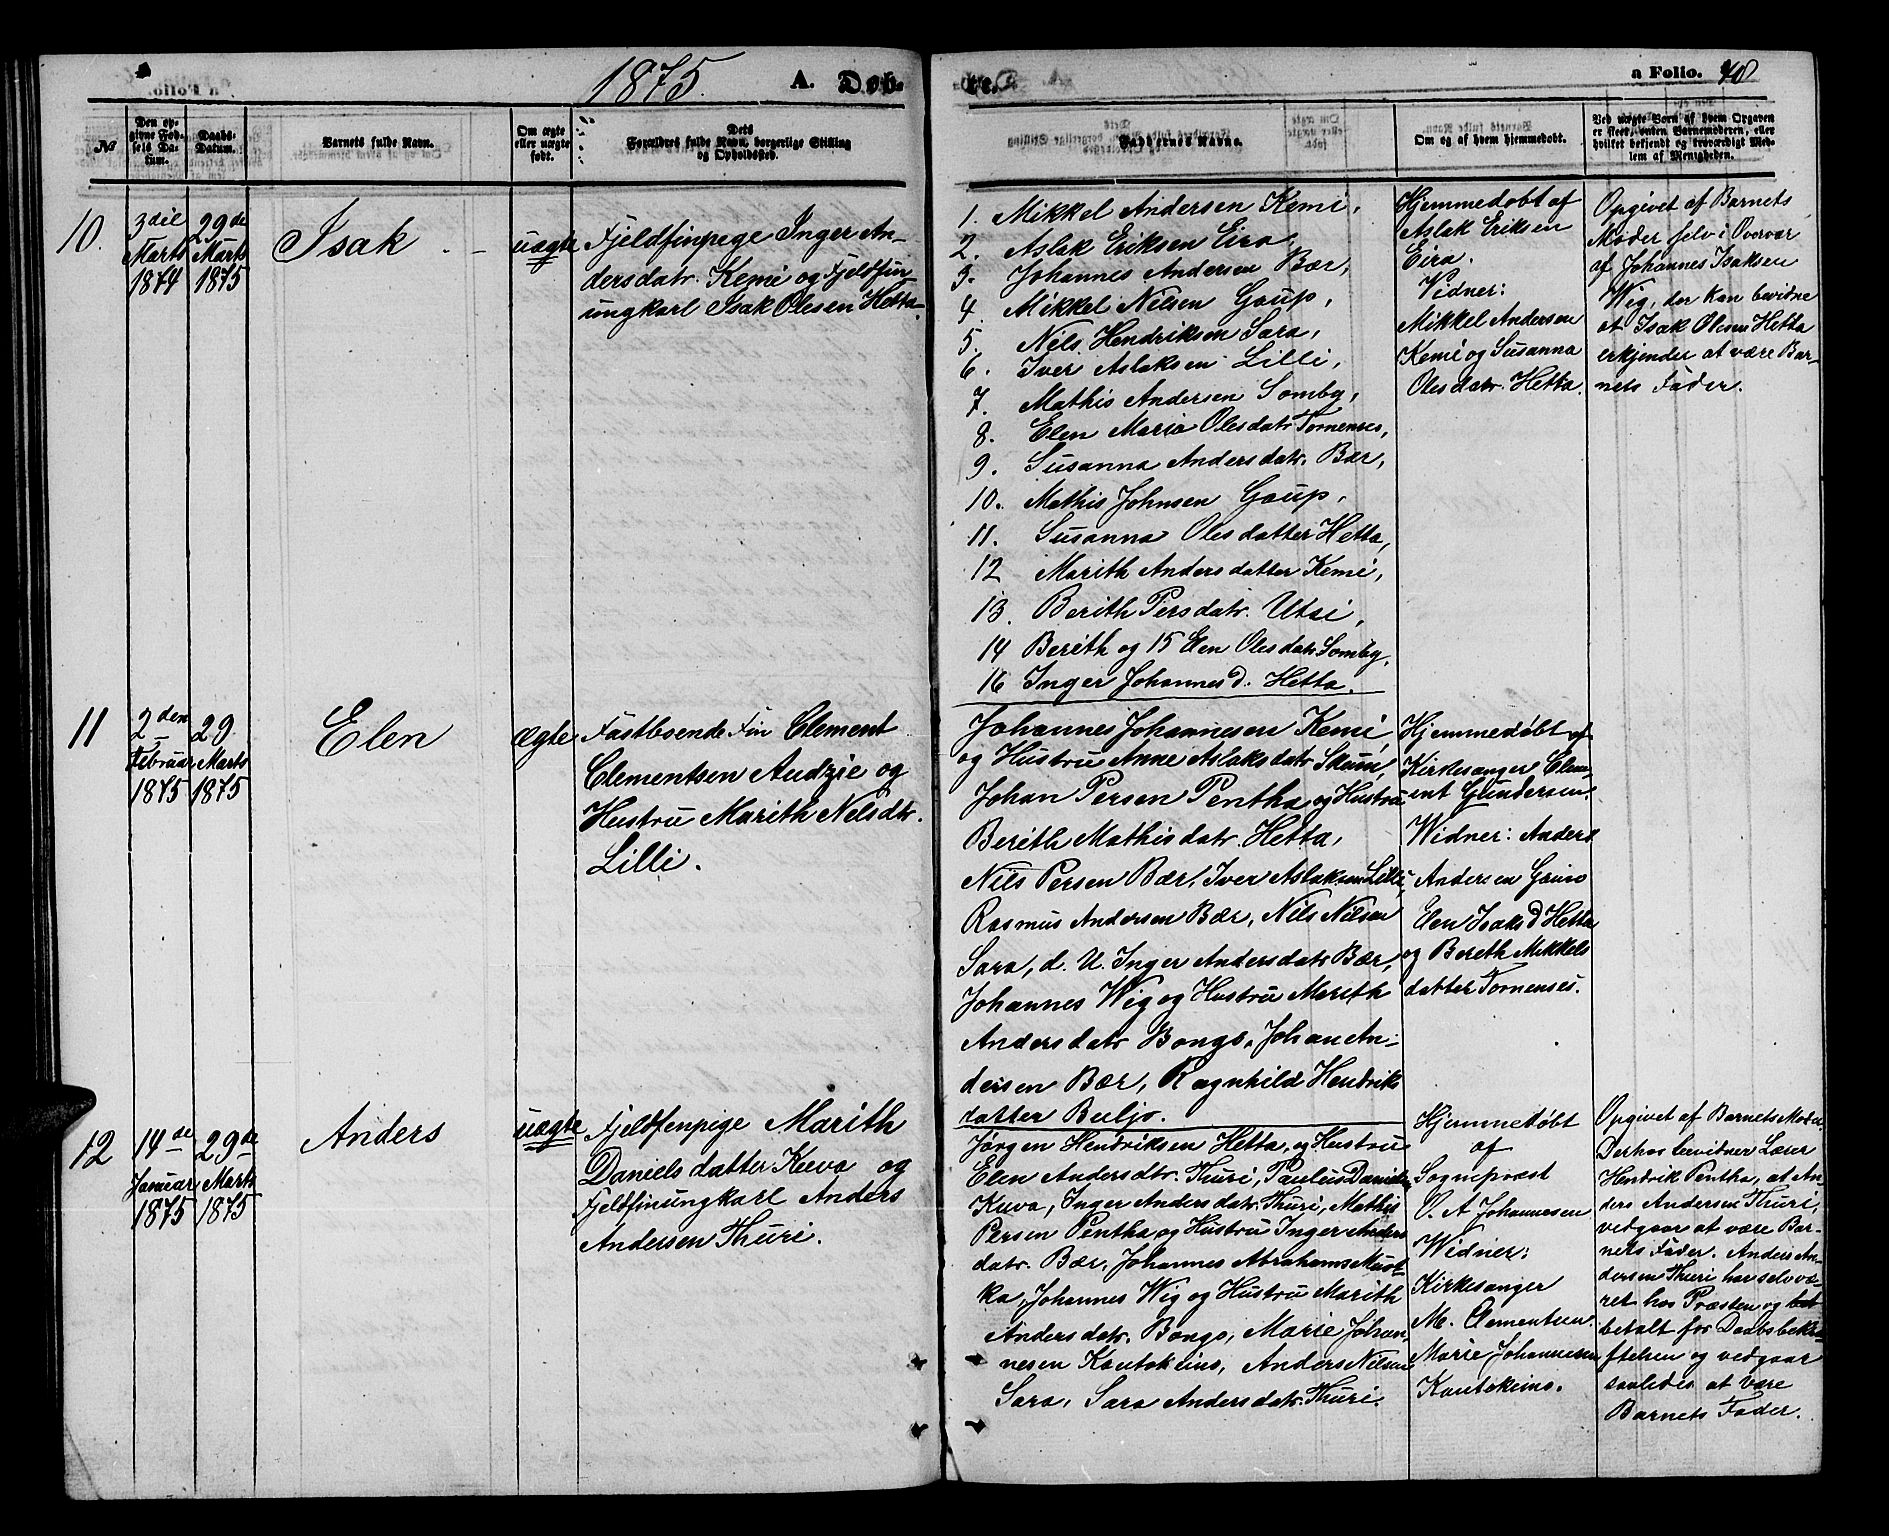 1875. A. Døb-
te.
a Folio. 40
№
Den op-
givne Fød-
sels Da-
tum.
Daabs-
Datum.
Barnets fulde Navn.
Om ægte
eller uægte
født.
Dets
Forældres fulde Navn, borgerlige Stilling
og Opholdssted.
Faddernes Navne.
Om og af hvem hjemmedøbt.
Ved uægte Børn af hvem Opgaven
er skeet, enten Barnemoderen, eller
hvilket bekjendt og troværdigt Med-
lem af Menigheden.
10.
3die
Marts
1874
29de
Marts
1875
Isak
uægte
Fjeldfinpege Inger An-
dersdatr. Kemi og Fjeldfin
ungkarl Isak Olesen Hetta.
1. Mikkel Andersen Kemi,
2. Aslak Eriksen Eira
3. Johannes Andersen Bær,
4. Mikkel Nilsen Gaup,
5. Nils Hendriksen Sara,
6. Iver Aslaksen Lilli,
7. Mathis Andersen Somby,
8. Elen Maria Olesdatr Tornenses,
9. Susanna Andersdatr. Bær,
10. Mathis Johnsen Gaup,
11. Susanna Olesdatter Hetta,
12 Marith Andersdatter Kemi,
13. Berith Persdatr. Utsi,
14 Berith og 15 Elen Olesdatr Somby,
16 Inger Johannesd. Hetta.
Hjemmedøbt af
Aslak Eriksen
Eira.
Vidner:
Mikkel Andersen
Kemi og Susanna
Olesdatr. Hetta.
Opgivet af Barnets
Moder selv i Overvær
af Johannes Isaksen
Wig, der kan bevidne
at Isak Olesen Hetta
erkjender at være Bar-
nets Fader.
11
2den
Februar
1875
29
Marts
1875
Elen
ægte
Fastboende Fin Clement
Clementsen Audzie og
Hustru Marith Nelsdtr.
Lilli.
Johannes Johannesen Kemi
og Hustru Anne Aslaksdatr Skum,
Johan Persen Pentha og Hustru
Berith Mathisdatr. Hetta,
Nils Persen Bær, Iver Aslaksen Lilli,
Rasmus Andersen Bær, Nils Nilsen
Sara, d. U. Inger Andersdatr Bær,
Johannes Wig og Hustru Marith
Andersdatr Bongo, Johan An-
dersen Bær, Ragnhild Hendriks
datter Buljo.
Hjemmedøbt af
Kirkesanger Clem-
ent Gundersen.
Widner: Anders
Andersen Gaino
Elen Isaks D Hetta
og Bereth Mikkels
datter Tornenses.
12
14de
Januar
1875
29de
Marts
1875
Anders
uægte
Fjeldfenpige Marith
Danielsdatter Kuva og
Fjeldfinungkarl Anders
Andersen Thuri.
Jørgen Hendriksen Hetta, og Hustru
Elen Andersdtr. Thuri, Paulus Daniels
Kuva, Inger Andersdatr. Thuri, Mathis
Persen Pentha og Hustru Inger Anders
datr. Bær, Johannes Abrahams Must-
ka, Johannes Wig og Hustru Marith
Andersdatr. Bongo, Marie Johan-
nesen Kautokeino, Anders Nilsen
Sara, Sara Andersdatr. Thuri.
Hjemmedøbt
af
Sognepræst
O. A Johannesen
Widner:
Kirkesanger
M. Clementsen.
Marie Johannesen
Kautokeino.
Opgivet af Barnets Moder,
Derhos bevidner Lærer
Hendrik Pentha, at An-
ders Andersen Thuri,
vedgaar at være Bar-
nets Fader. Anders An-
dersen Thuri har selv væ-
ret hos Præsten og
betalt for Daabsbekr-
ftelsen og vedgaar
saaledes at være
Barnets Fader.